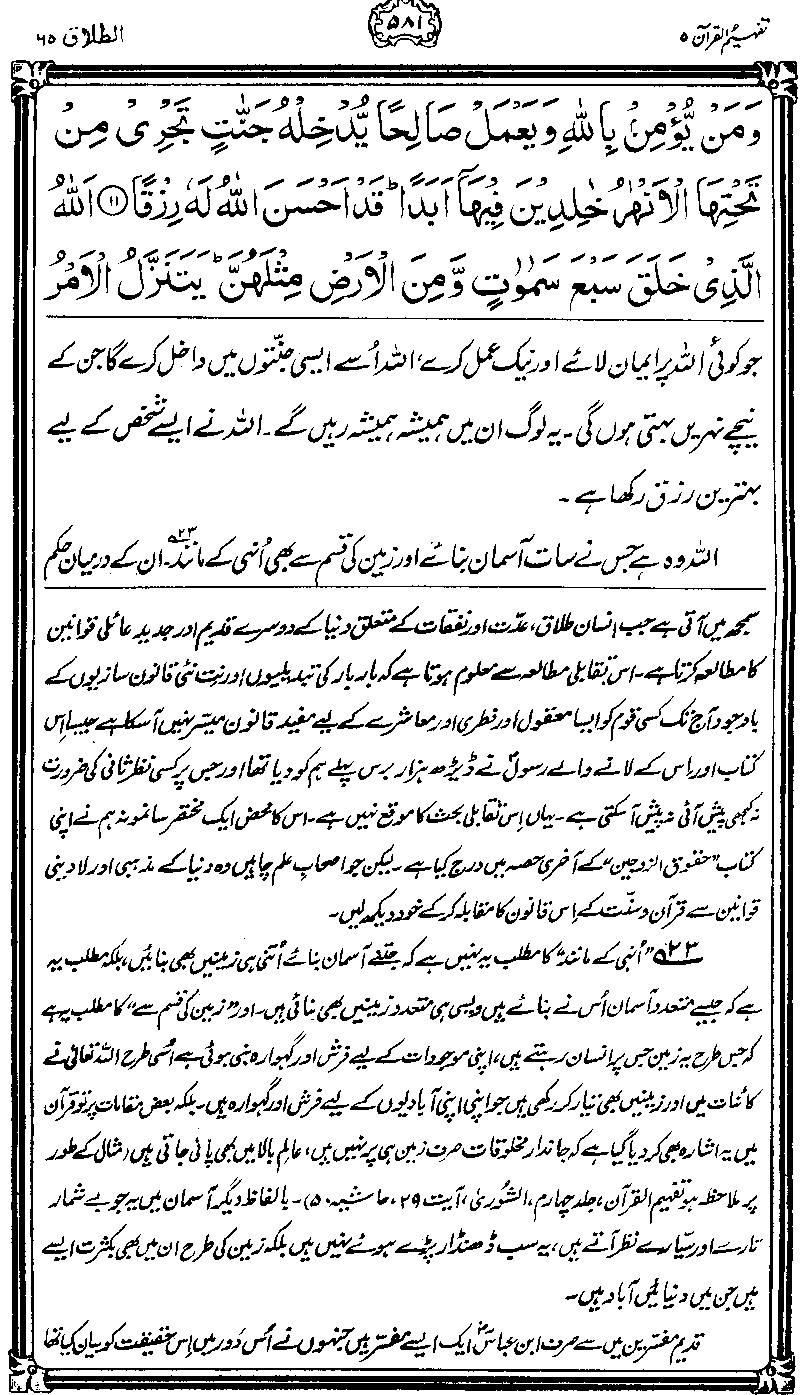 تفہیم القرآن ۵
۵۸۱
الطلاق ۶۵
وَمَنْ يُّؤْمِنْۢ بِاللّٰهِ وَيَعْمَلْ صَالِحًا يُّدْخِلْهُ جَنّٰتٍ تَجْرِيْ مِنْ
تَحْتِهَا الْاَنْهٰرُ خٰلِدِيْنَ فِيْهَآ اَبَدًا ؕ قَدْ اَحْسَنَ اللّٰهُ لَهٗ رِزْقًا ⑪ اَللّٰهُ
الَّذِيْ خَلَقَ سَبْعَ سَمٰوٰتٍ وَّمِنَ الْاَرْضِ مِثْلَهُنَّ ؕ يَتَنَزَّلُ الْاَمْرُ
جو کوئی اللہ پر ایمان لائے اور نیک عمل کرے، اللہ اُسے ایسی جنّتوں میں داخل کرے گا جن کے
نیچے نہریں بہتی ہوں گی۔ یہ لوگ ان میں ہمیشہ ہمیشہ رہیں گے۔ اللہ نے ایسے شخص کے لیے
بہترین رزق رکھا ہے۔
اللہ وہ ہے جس نے سات آسمان بنائے اور زمین کی قسم سے بھی اُنہی کے مانند۲۳۔ ان کے درمیان حکم
سمجھ میں آتی ہے جب انسان طلاق، عدّت اور نفقات کے متعلق دنیا کے دوسرے قدیم اور جدید عائلی قوانین
کا مطالعہ کرتا ہے۔ اس تقابلی مطالعہ سے معلوم ہوتا ہے کہ بار بار کی تبدیلیوں اور نِت نئی قانون سازیوں کے
باوجود آج تک کسی قوم کو ایسا معقول اور فطری اور معاشرے کے لیے مفید قانون میسّر نہیں آ سکا ہے جیسا اِس
کتاب اور اِس کے لانے والے رسولؐ نے ڈیڑھ ہزار برس پہلے ہم کو دیا تھا اور جس پر کسی نظرِ ثانی کی ضرورت
نہ کبھی پیش آئی نہ پیش آ سکتی ہے۔ یہاں اِس تقابلی بحث کا موقع نہیں ہے۔ اس کا محض ایک مختصر سا نمونہ ہم نے اپنی
کتاب ”حقوق الزوجین“ کے آخری حصہ میں درج کیا ہے۔ لیکن جو اصحابِ علم چاہیں وہ دنیا کے مذہبی اور لادینی
قوانین سے قرآن و سنّت کے اِس قانون کا مقابلہ کر کے خود دیکھ لیں۔
۲۳ ”اُنہی کے مانند“ کا مطلب یہ نہیں ہے کہ جتنے آسمان بنائے اُتنی ہی زمینیں بھی بنائیں، بلکہ مطلب یہ
ہے کہ جیسے متعدد آسمان اُس نے بنائے ہیں ویسی ہی متعدد زمینیں بھی بنائی ہیں۔ اور ”زمین کی قسم سے“ کا مطلب یہ ہے
کہ جس طرح یہ زمین جس پر انسان رہتے ہیں، اپنی موجودات کے لیے فرش اور گہوارہ بنی ہوئی ہے اُسی طرح اللہ تعالیٰ نے
کائنات میں اور زمینیں بھی تیار کر رکھی ہیں جو اپنی اپنی آبادیوں کے لیے فرش اور گہوارہ ہیں۔ بلکہ بعض مقامات پر تو قرآن
میں یہ اشارہ بھی کر دیا گیا ہے کہ جاندار مخلوقات صرف زمین ہی پر نہیں ہیں، عالمِ بالا میں بھی پائی جاتی ہیں (مثال کے طور
پر ملاحظہ ہو تفہیم القرآن، جلد چہارم، الشُّوریٰ، آیت ۲۹، حاشیہ ۵۰)۔ بالفاظِ دیگر آسمان میں یہ جو بے شمار
تارے اور سیّارے نظر آتے ہیں، یہ سب ڈھنڈار پڑے ہوئے نہیں ہیں بلکہ زمین کی طرح ان میں بھی بکثرت ایسے
ہیں جن میں دنیائیں آباد ہیں۔
قدیم مفسّرین میں سے صرف ابن عباسؓ ایک ایسے مفسّر ہیں جنہوں نے اُس دَور میں اِس حقیقت کو بیان کیا تھا